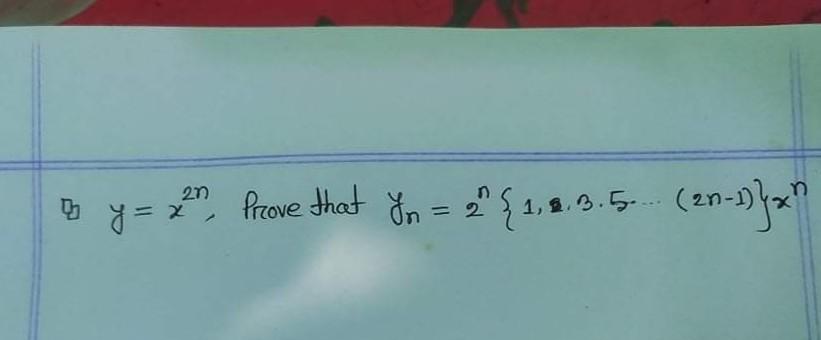 y = x^{2n}, Prove that y_n = 2^n {1, 2. 3. 5.... (2n-1)}x^n